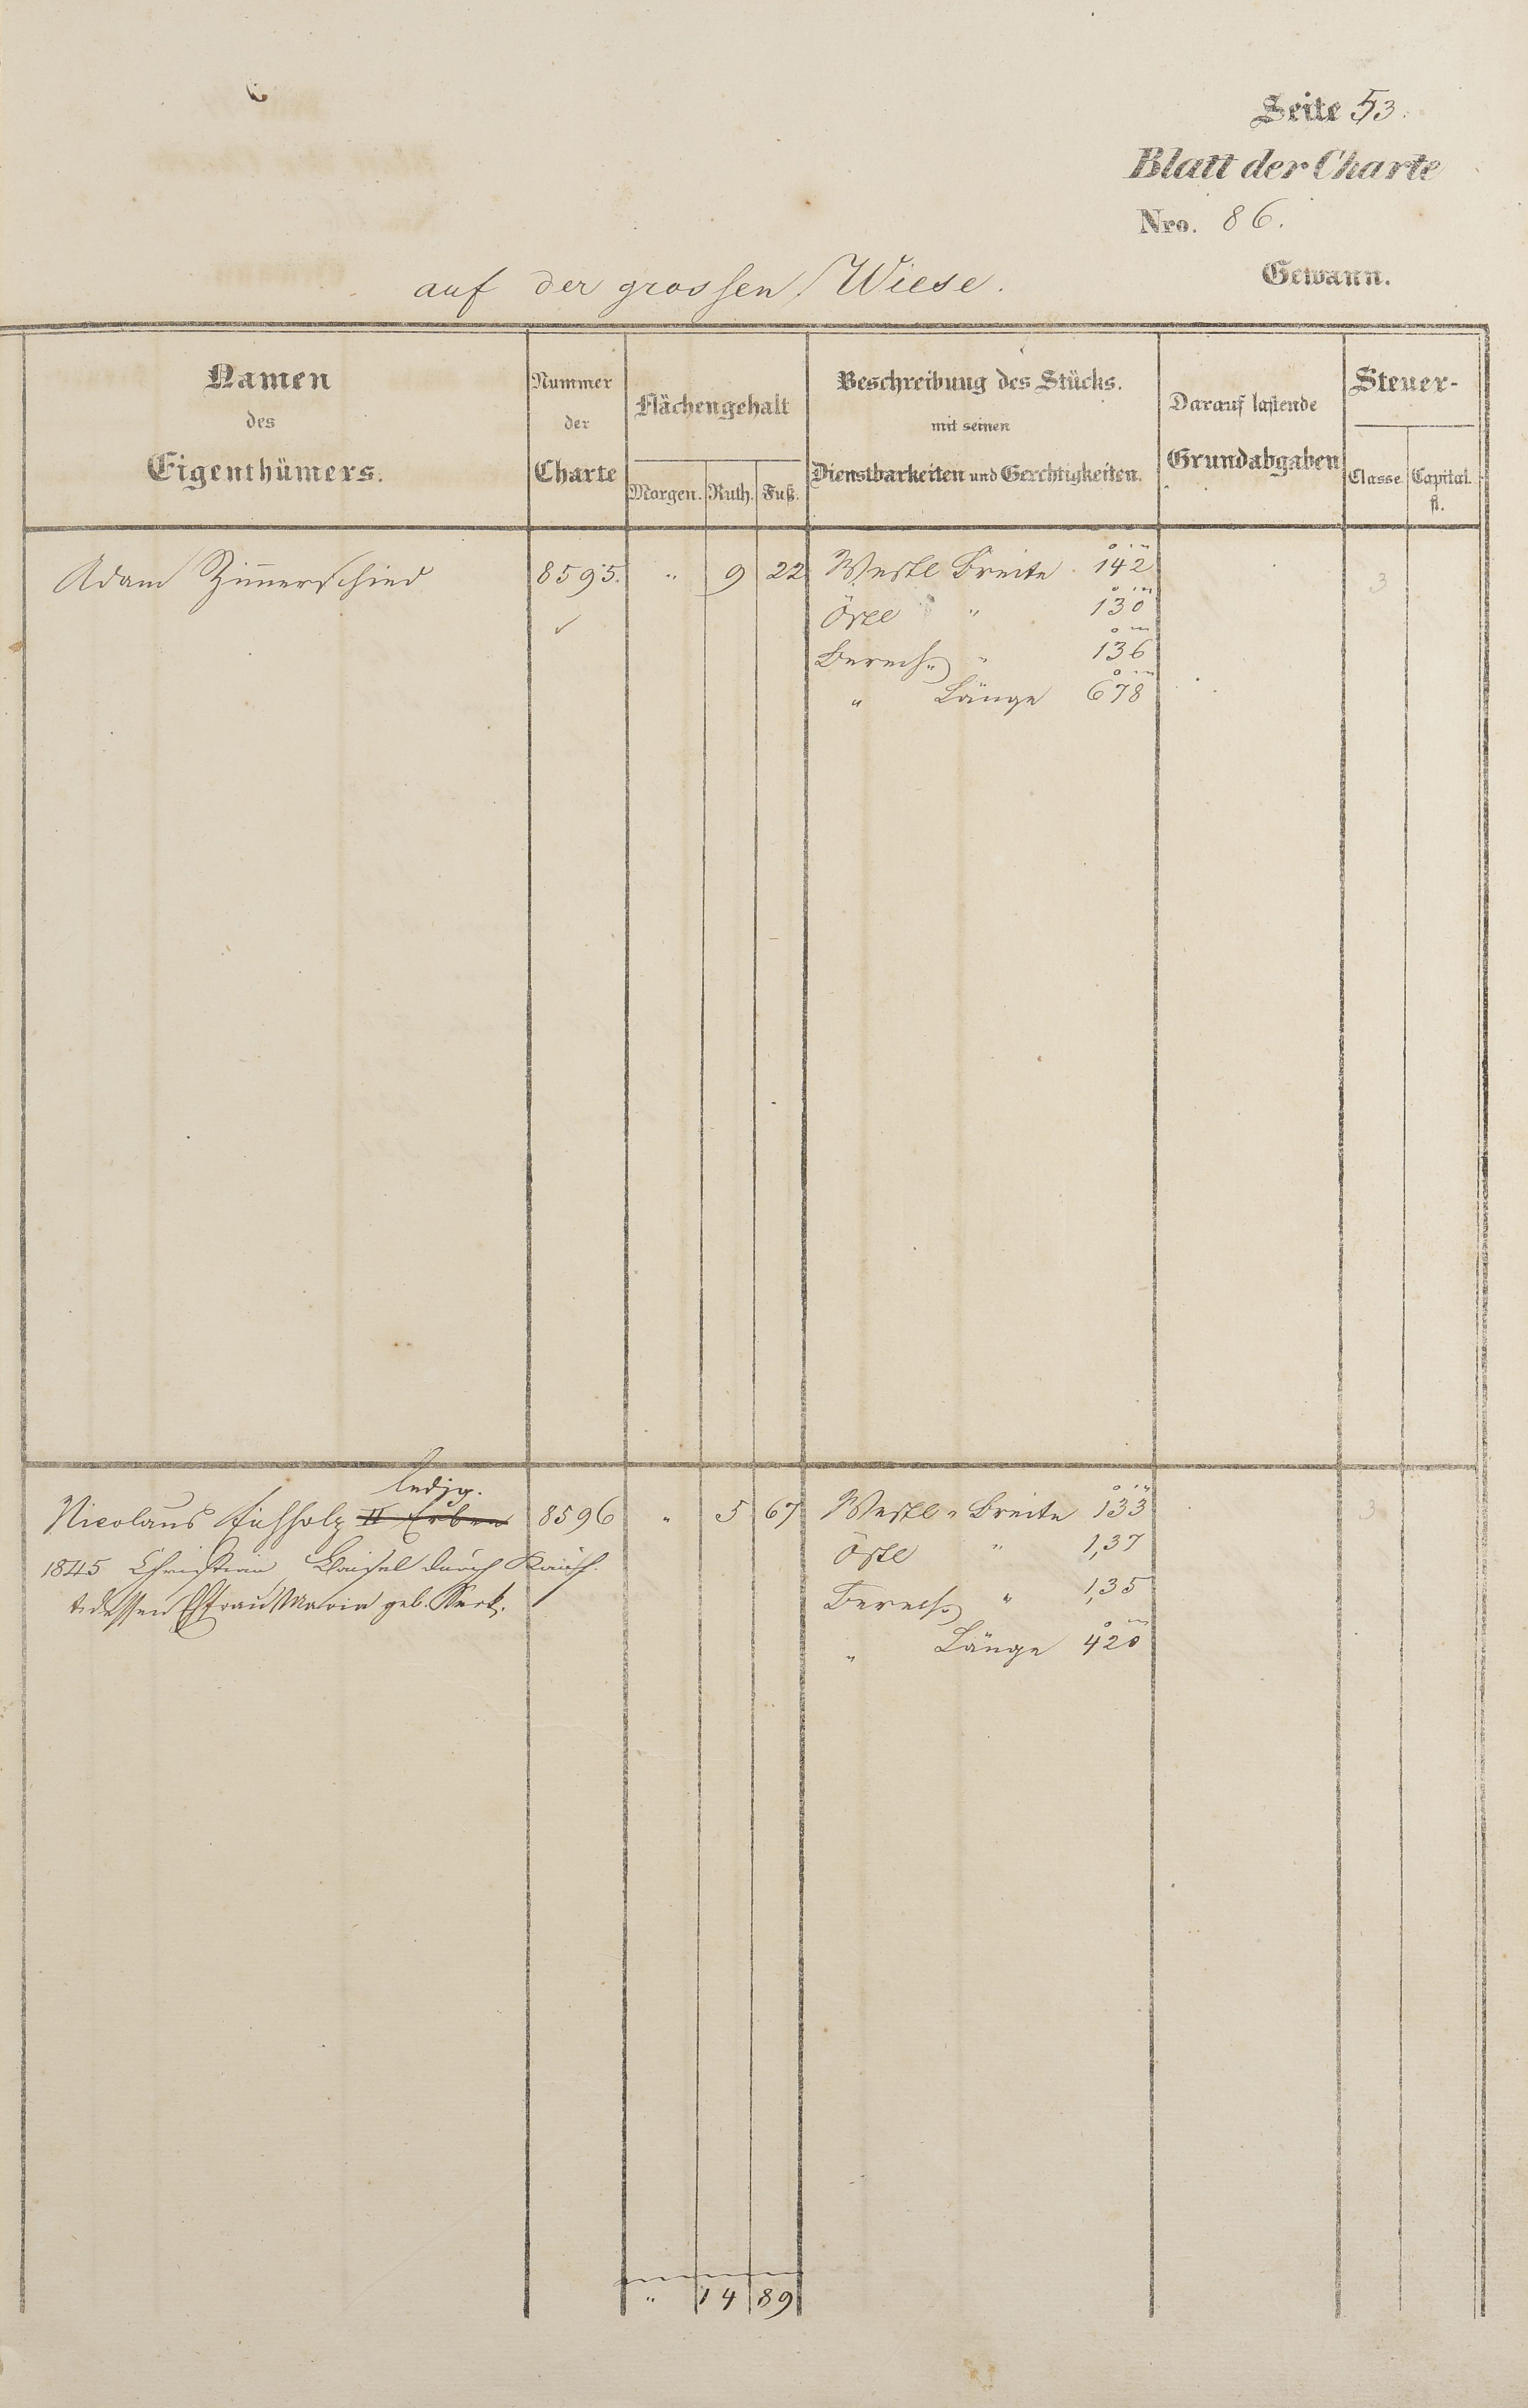 Seite 53.
Blatt der Charte
Nro. 86.
auf der grossen Wiese. Gewann.
Namen des Eigenthümers.
Nummer der Charte
Flächengehalt
Morgen. Ruth. Fuß.
Beschreibung des Stücks.
mit seinen
Dienstbarkeiten und Gerechtigkeiten.
Darauf lastende
Grundabgaben
Steuer-
Classe Capital.
fl.
Adam Zimerschied 8595. " 9 22 Westl Breite 142 3
Östl " 130
Berech. " 136
" Länge 678
ledig.
Nicolaus Eichholz II Erben 8596 " 5 67 Westl. Breite 133 3
1845 Christian durch Kauf. Östl " 1,37
t. dessen Efrau Maria geb. Berech. " 1,35
" Länge 420
" 14 89